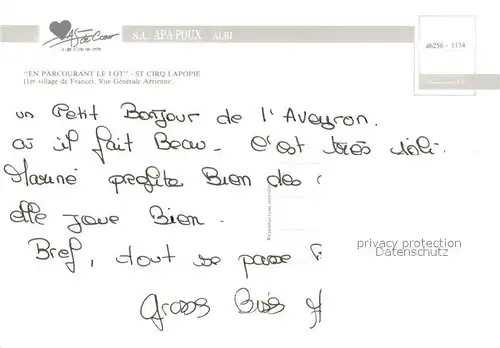 As de Cœur
S.A. APA-POUX ALBI
46256 - 1134
"EN PARCOURANT LE LOT" - ST CIRQ LAPOPIE
(1er village de France). Vue Générale Aérienne.
un Petit Bonjour de l'Aveyron.
où il fait Beau. C'est très joli.
profite Bien des
elle joue Bien.
Bref, tout se passe
Gross Bises
privacy protection
Datenschutz